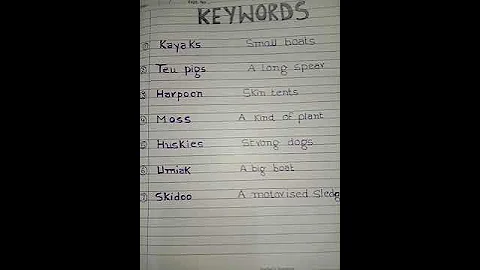 KEYWORDS
① Kayaks Small boats
② Teu pigs A long spear
③ Harpoon Skin tents
④ Moss A kind of plant
⑤ Huskies Strong dogs
⑥ Umiak A big boat
⑦ Skidoo A motorised Sledg